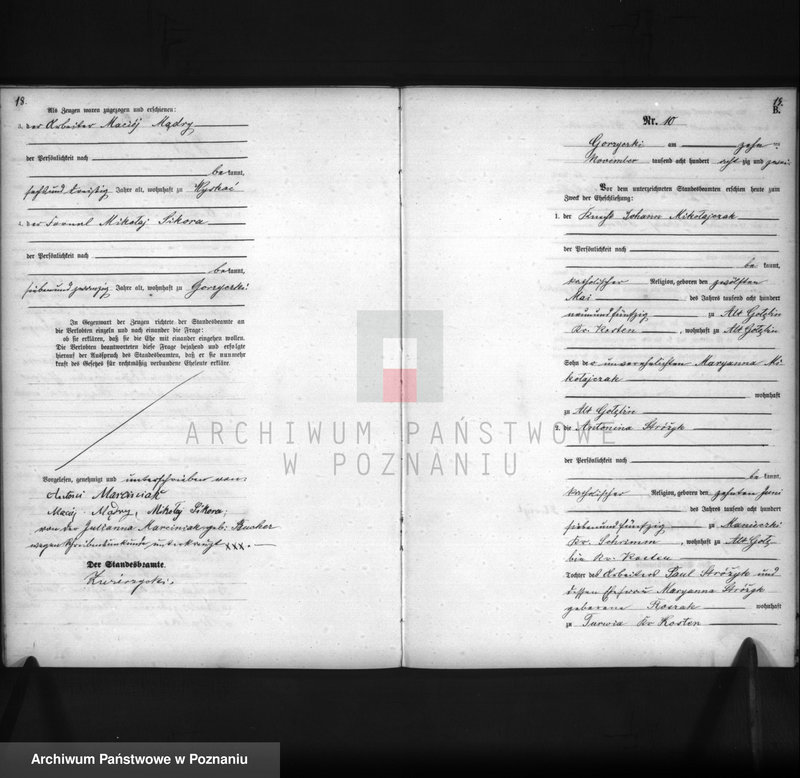 18.
Als Zeugen waren zugezogen und erschienen:
3. der Arbeiter Maciej Mądry
der Persönlichkeit nach
be kannt,
sechsund dreißig Jahre alt, wohnhaft zu Wyskoć
4. der Fornal Mikołaj Sikora
der Persönlichkeit nach
be kannt,
siebenundzwanzig Jahre alt, wohnhaft zu Gorzyczki
In Gegenwart der Zeugen richtete der Standesbeamte an
die Verlobten einzeln und nach einander die Frage:
ob sie erklären, daß sie die Ehe mit einander eingehen wollen.
Die Verlobten beantworteten diese Frage bejahend und erfolgte
hierauf der Ausspruch des Standesbeamten, daß er sie nunmehr
kraft des Gesetzes für rechtmäßig verbundene Eheleute erkläre.
Vorgelesen, genehmigt und unterschrieben von:
Antoni Marciniak
Maciej Mądry, Mikołaj Sikora;
von der Julianna Marciniak geb.
wegen Schreibensunkunde unterkreuzt xxx.
Der Standesbeamte.
B.
Nr. 10
Gorzyczki am zehn ten
November tausend acht hundert acht zig und zwei
Vor dem unterzeichneten Standesbeamten erschien heute zum
Zweck der Eheschließung:
1. der Knecht Johann Mikołajczak
der Persönlichkeit nach
be kannt,
katholischer Religion, geboren den zwölften
Mai des Jahres tausend acht hundert
neunundfünfzig zu Alt Golzlin
Kr. Kosten, wohnhaft zu Alt Golzlin
Sohn der unverehelichten Maryanna Mi
kołajczak
wohnhaft
zu Alt Golzlin
2. die Antonina Stróżyk
der Persönlichkeit nach
be kannt,
katholischer Religion, geboren den zehnten Juni
des Jahres tausend acht hundert
siebenundfünfzig zu Manieczki
Kr. Schrimm, wohnhaft zu Alt Golz
lin Kr. Kosten
Tochter des Arbeiters Paul Stróżyk und
dessen Ehefrau Maryanna Stróżyk
geborene Roszak wohnhaft
zu Turwia Kr. Kosten
ARCHIWUM PAŃSTWOWE
W POZNANIU
Archiwum Państwowe w Poznaniu